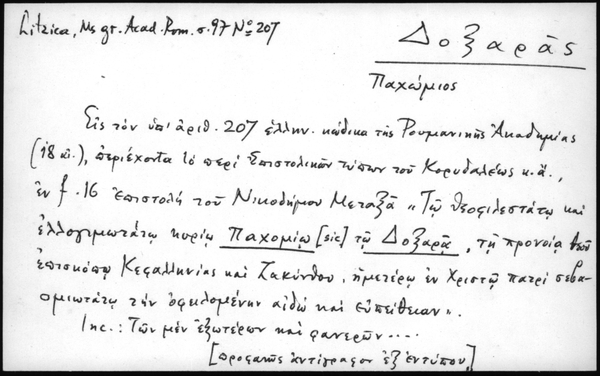 Litzica, Ms gr. Acad. Rom. σ. 97 Nº 207
Δοξαρᾶς
Παχώμιος
Εἰς τὸν ὑπ' ἀριθ. 207 ἑλλην. κώδικα τῆς Ρουμανικῆς Ἀκαδημίας
(18 αἰ.), περιέχοντα τὸ περὶ Ἐπιστολικῶν τύπων τοῦ Κορυδαλέως κ.ἄ.,
ἐν f. 16 ἐπιστολὴ τοῦ Νικοδήμου Μεταξᾶ « Τῷ θεοφιλεστάτῳ καὶ
ἐλλογιμωτάτῳ κυρίῳ Παχομίῳ [sic] τῷ Δοξαρᾷ, τῇ προνοίᾳ θεοῦ
ἐπισκόπῳ Κεφαλληνίας καὶ Ζακύνθου, ἡμετέρῳ ἐν Χριστῷ πατρὶ σεβα-
σμιωτάτῳ τὴν ὀφειλομένην αἰδῶ καὶ εὐπείθειαν».
Inc.: Τῶν μὲν ἐξωτέρων καὶ φανερῶν ....
[προφανῶς ἀντίγραφον ἐξ ἐντύπου]